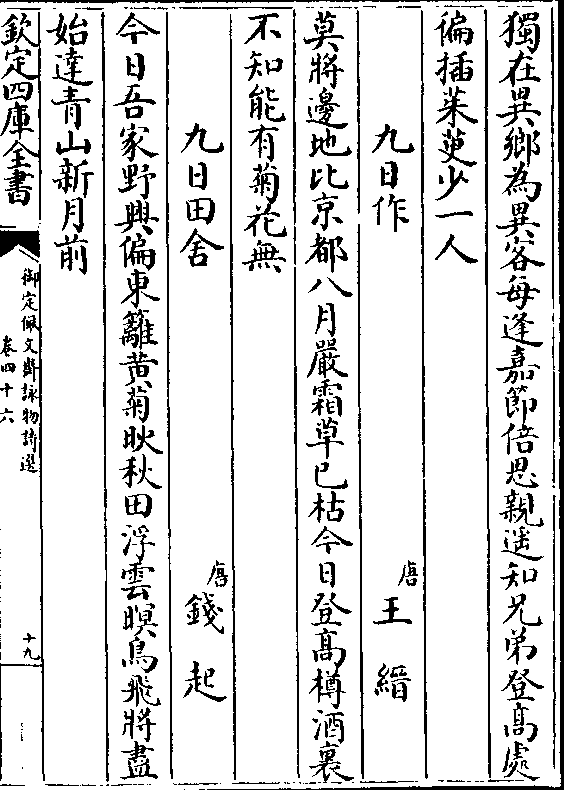 獨在異鄉為異客每逢嘉節倍思親遥知兄弟登髙處
徧插茱萸少一人
九日作
唐王縉
莫將邊地比京都八月嚴霜草已枯今日登髙樽酒裏
不知能有菊花無
九日田舍
唐錢起
今日吾家野興偏東籬黄菊映秋田浮雲暝鳥飛將盡
始達青山新月前
欽定四庫全書
御定佩文齋詠物詩選
卷四十六
十九